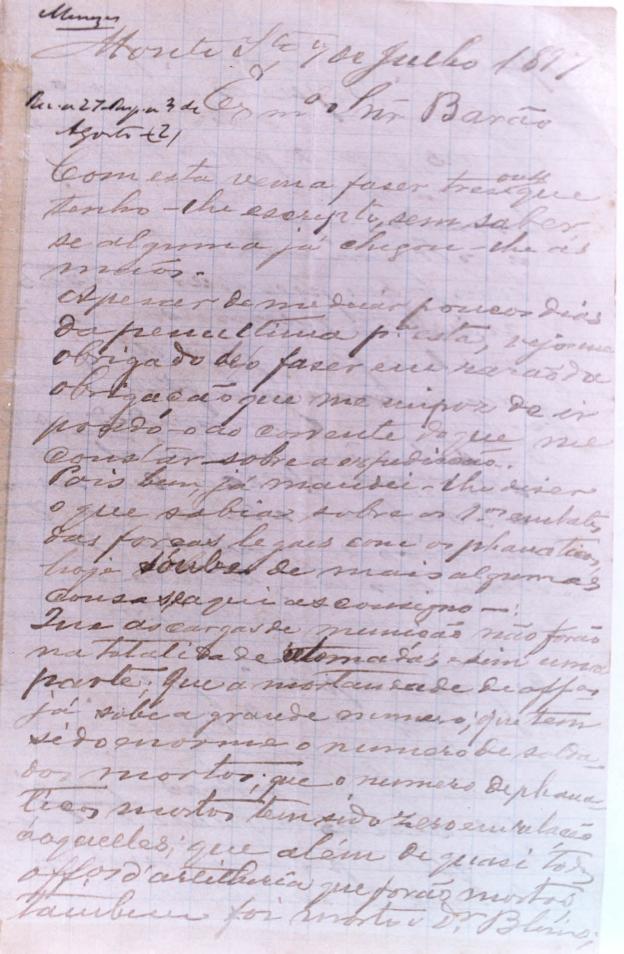 Menezes
Monte Sto 7 de Julho 1897
Exmo Snr Barão
Agosto
Com esta vem a faser tres que
ou 4
tenho-lhe escripto, sem saber
se alguma já chegou-lhe as
mãos.
Apezar de mediar poucos dias
da penultima pa esta, vejo-me
obrigado a faser em razão da
obrigação que me impoz de ir
pondo-o ao corrente do que me
constar sobre a expedição.
Pois bem, já mandei-lhe diser
o que sabia sobre os 1os embates
das forças legaes com os phanaticos,
hoje soube de mais algumas
cousas e aqui as consigno —:
Que as cargas de munição não forão
na totalidade tomadas e sim uma
parte; que a mortandade de offos
já sobe a grande numero; que tem
sido enorme o numero de solda-
dos mortos; que o numero de phana-
ticos mortos tem sido zero em relação
áquelles; que além de quasi todos
offos d'artilharia que forão mortos
tambem foi morto o Dr